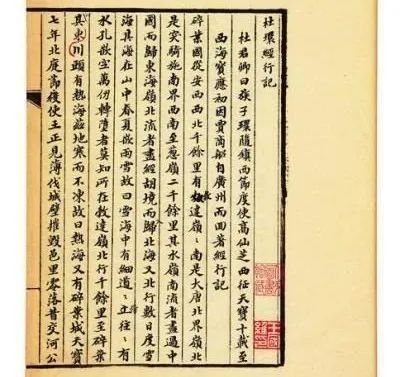 杜環經行記
杜君卿曰族子環隨鎮西節度使高仙芝西征天寶十載至
西海寶應初因賈商船自廣州而回著經行記
碎葉國從安西西北千餘里有達嶺〻南是大唐北界嶺北
是突騎施南界西南至葱嶺二千餘里其水嶺南流者盡過中
國而歸東海嶺北流者盡經胡境而歸北海又北行數日度雪
海其海在山中春夏雨雪故曰雪海中有細道〻往〻有
水孔嵌空萬仞轉墮者莫知所在達嶺北行千餘里至碎葉
其東川頭有熱海兹地寒而不凍故曰熱海又有碎葉城天寶
七年北庭節度使王正見薄伐城壁摧毀邑里零落昔交河公
王國維